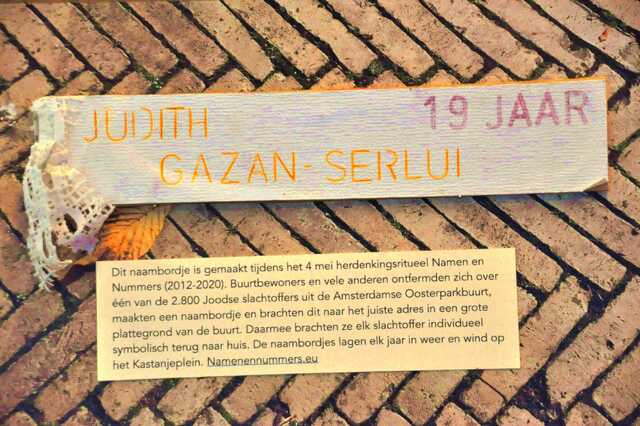 JUDITH 19 JAAR
GAZAN-SERLUI
Dit naambordje is gemaakt tijdens het 4 mei herdenkingsritueel Namen en
Nummers (2012-2020). Buurtbewoners en vele anderen ontfermden zich over
één van de 2.800 Joodse slachtoffers uit de Amsterdamse Oosterparkbuurt,
maakten een naambordje en brachten dit naar het juiste adres in een grote
plattegrond van de buurt. Daarmee brachten ze elk slachtoffer individueel
symbolisch terug naar huis. De naambordjes lagen elk jaar in weer en wind op
het Kastanjeplein. Namenennummers.eu